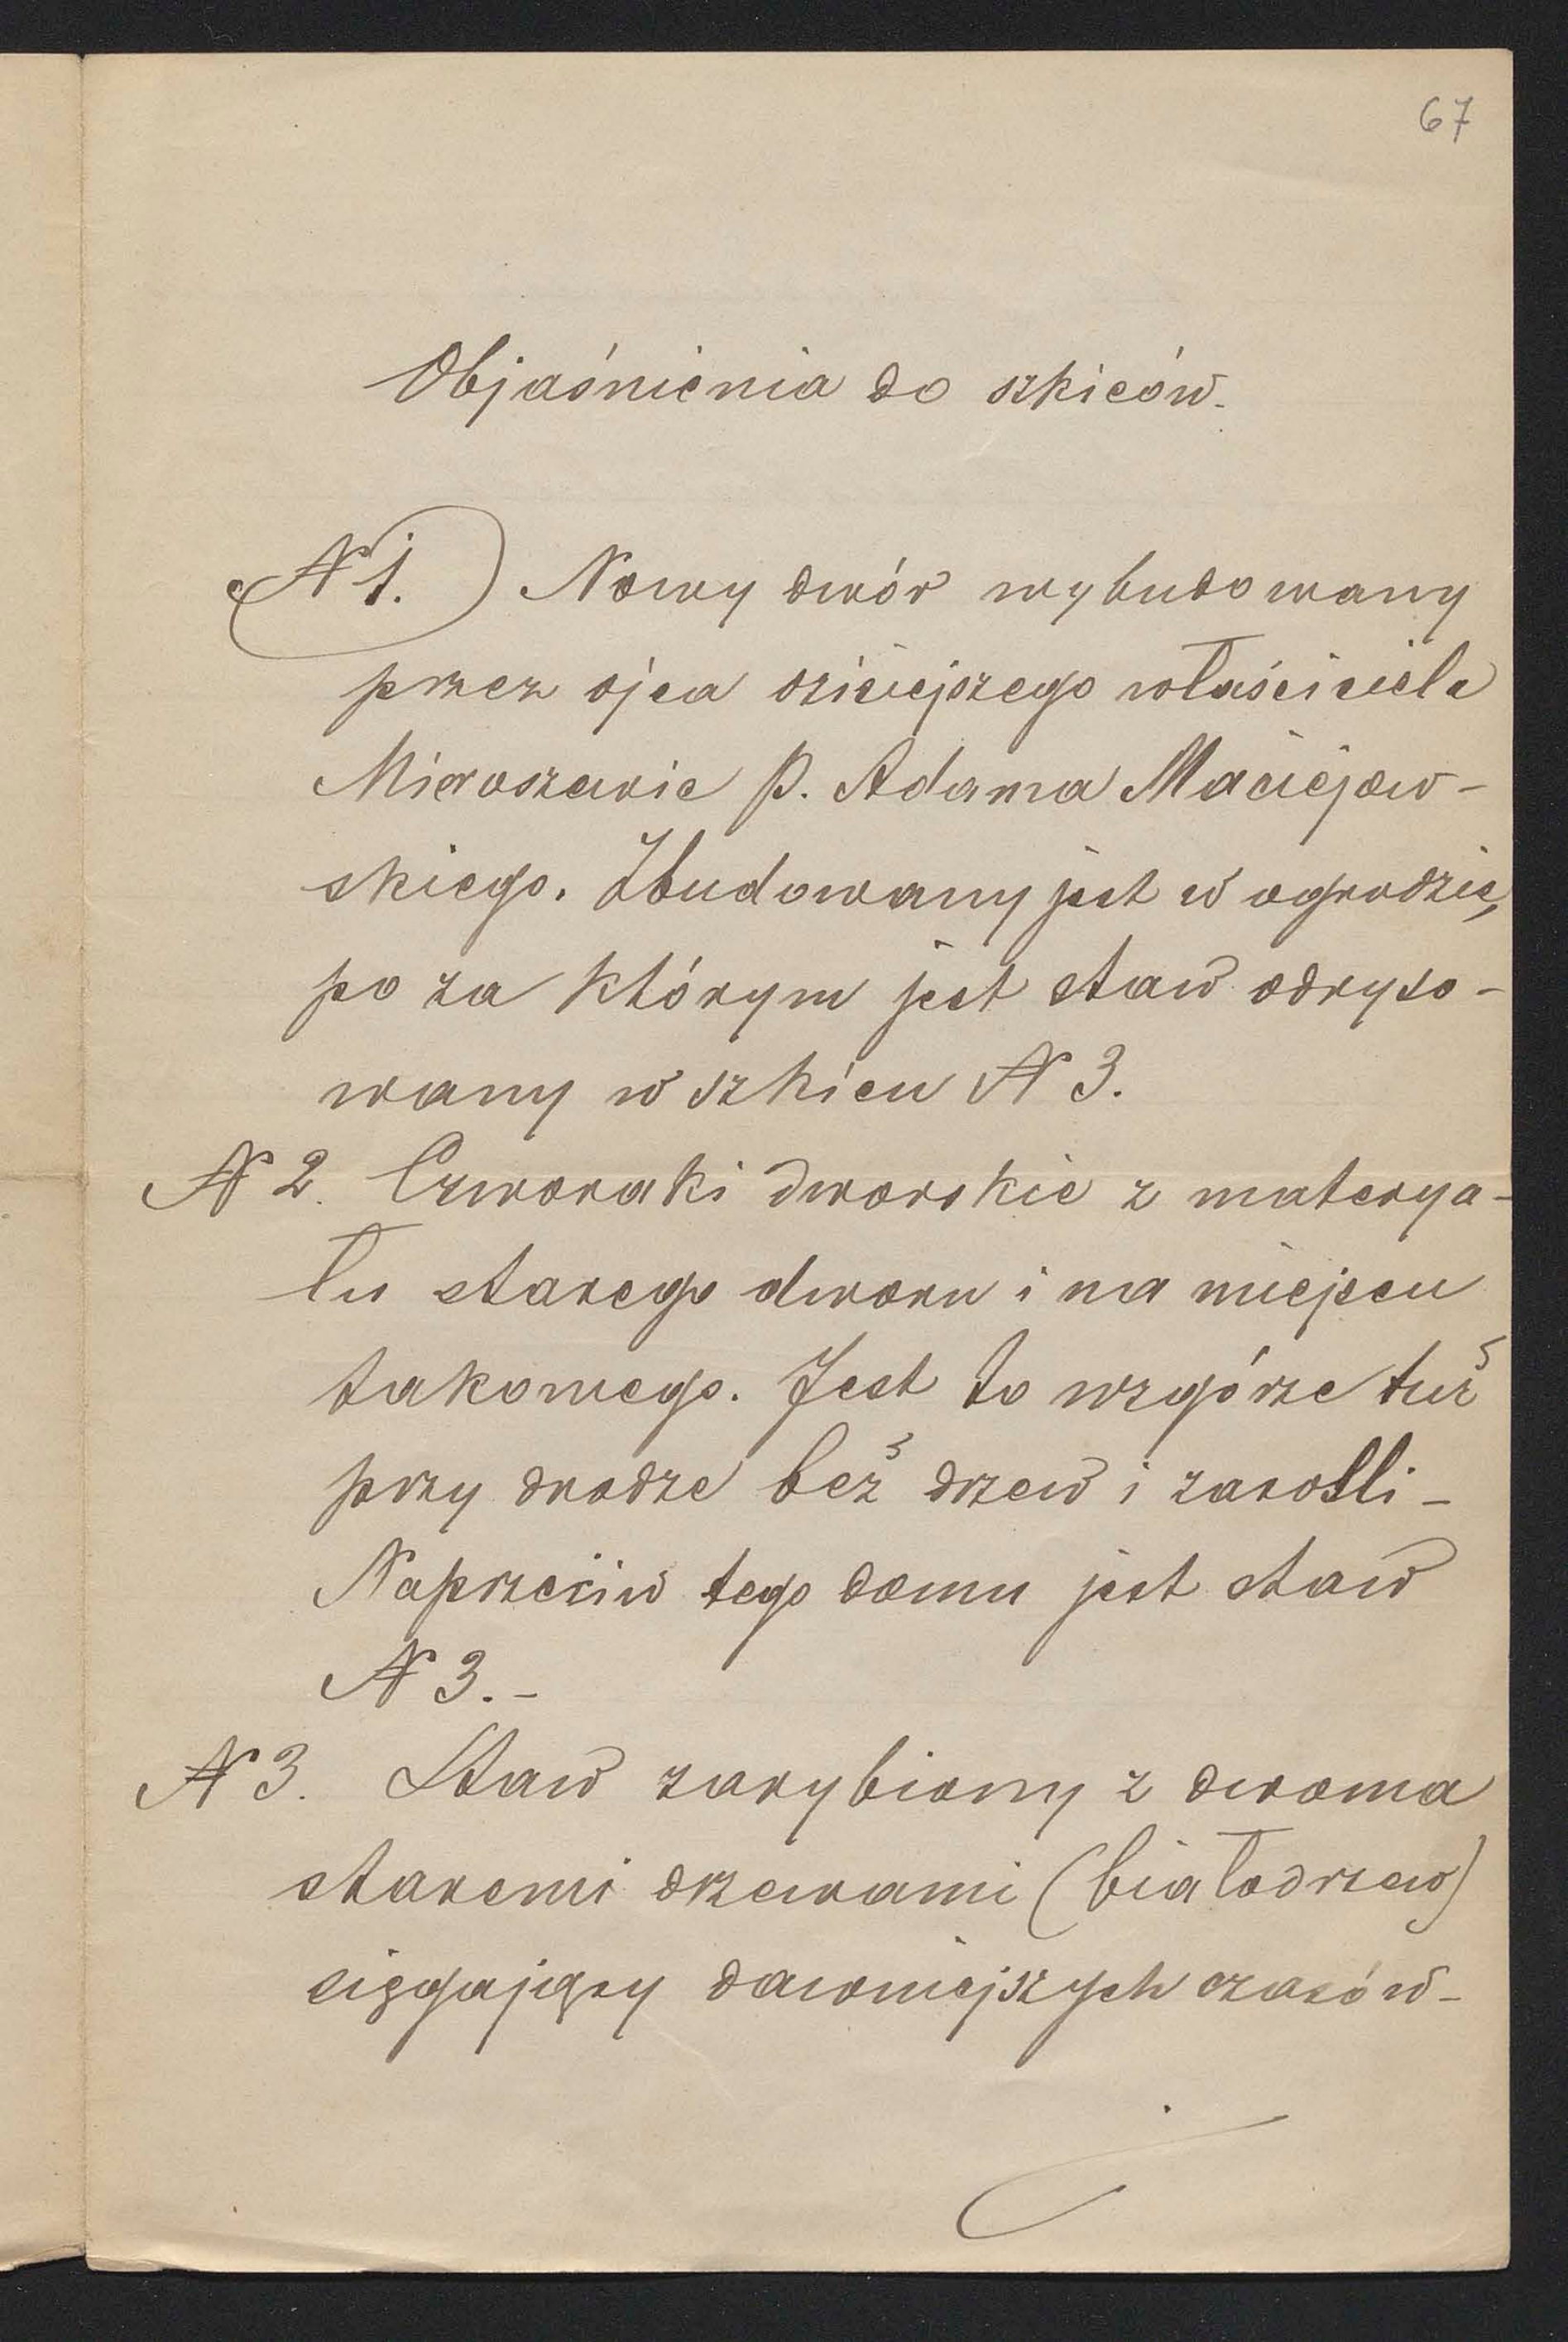 67
Objaśnienia do szkiców.
N 1.) Nowy dwór wybudowany
przez ojca dzisiejszego właściciela
Mieroszewic P. Adama Maciejow-
skiego. Zbudowany jest w ogrodzie,
po za którym jest staw odryso-
wany w szkicu N 3.
N 2. Czworaki dworskie z materya-
łu starego dworu i na miejscu
takowego. Jest to wzgórze tuż
przy drodze beż drzew i zarośli -
Naprzeciw tego domu jest staw
N 3. -
N 3. Staw zarybiony z dwoma
staremi drzewami (białodrzew)
sięgający dawniejszych czasów -